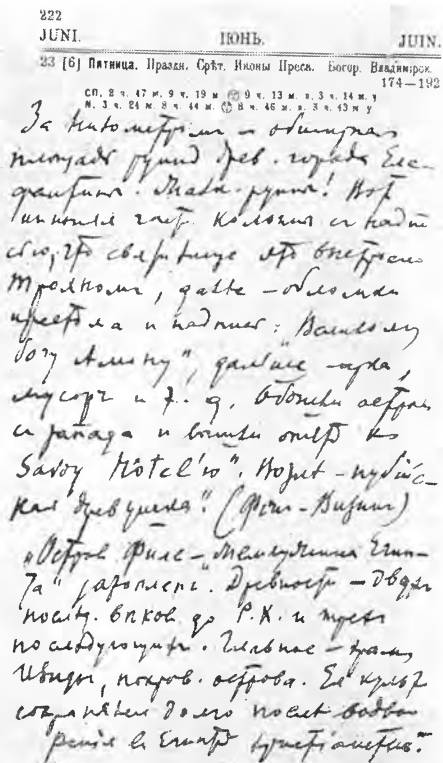 222
JUNI. ІЮНЬ. JUIN.
23 [6] Пятница. Праздн. Срѣт. Иконы Пресв. Богор. Владимірск.
174—192
СП. 2 ч. 47 м. 9 ч. 19 м 9 ч. 13 м. в. 3 ч. 14 м. у
М. 3 ч. 24 м. 8 ч. 44 м. 8 ч. 46 м. в. 3 ч. 43 м у
За Нилометромъ — обширная
площадь руинъ древ. города Еле-
фантины. Жалк. руины! Вотъ
колонна съ надпи
сью, что святилище это выстроено
Трояномъ, далѣе — обломки
престола и надпись: "Великому
богу Амону", дальше — арка,
мусоръ и т. д. Обошли островъ
съ запада и вышли опять къ
Savoy Hôtel'ю". Возлѣ — нубій-
ская деревушка". (Фонъ-Визинъ)
"Островъ Филе — "Жемчужина Егип-
та" затопленъ. Древности — двухъ
послѣд. вѣковъ до Р. Х. и трехъ
послѣдующихъ. Главное — храмъ
Изиды, покров. острова. Ея культъ
сохранялся долго послѣ водво
ренія въ Египтѣ христіанства."